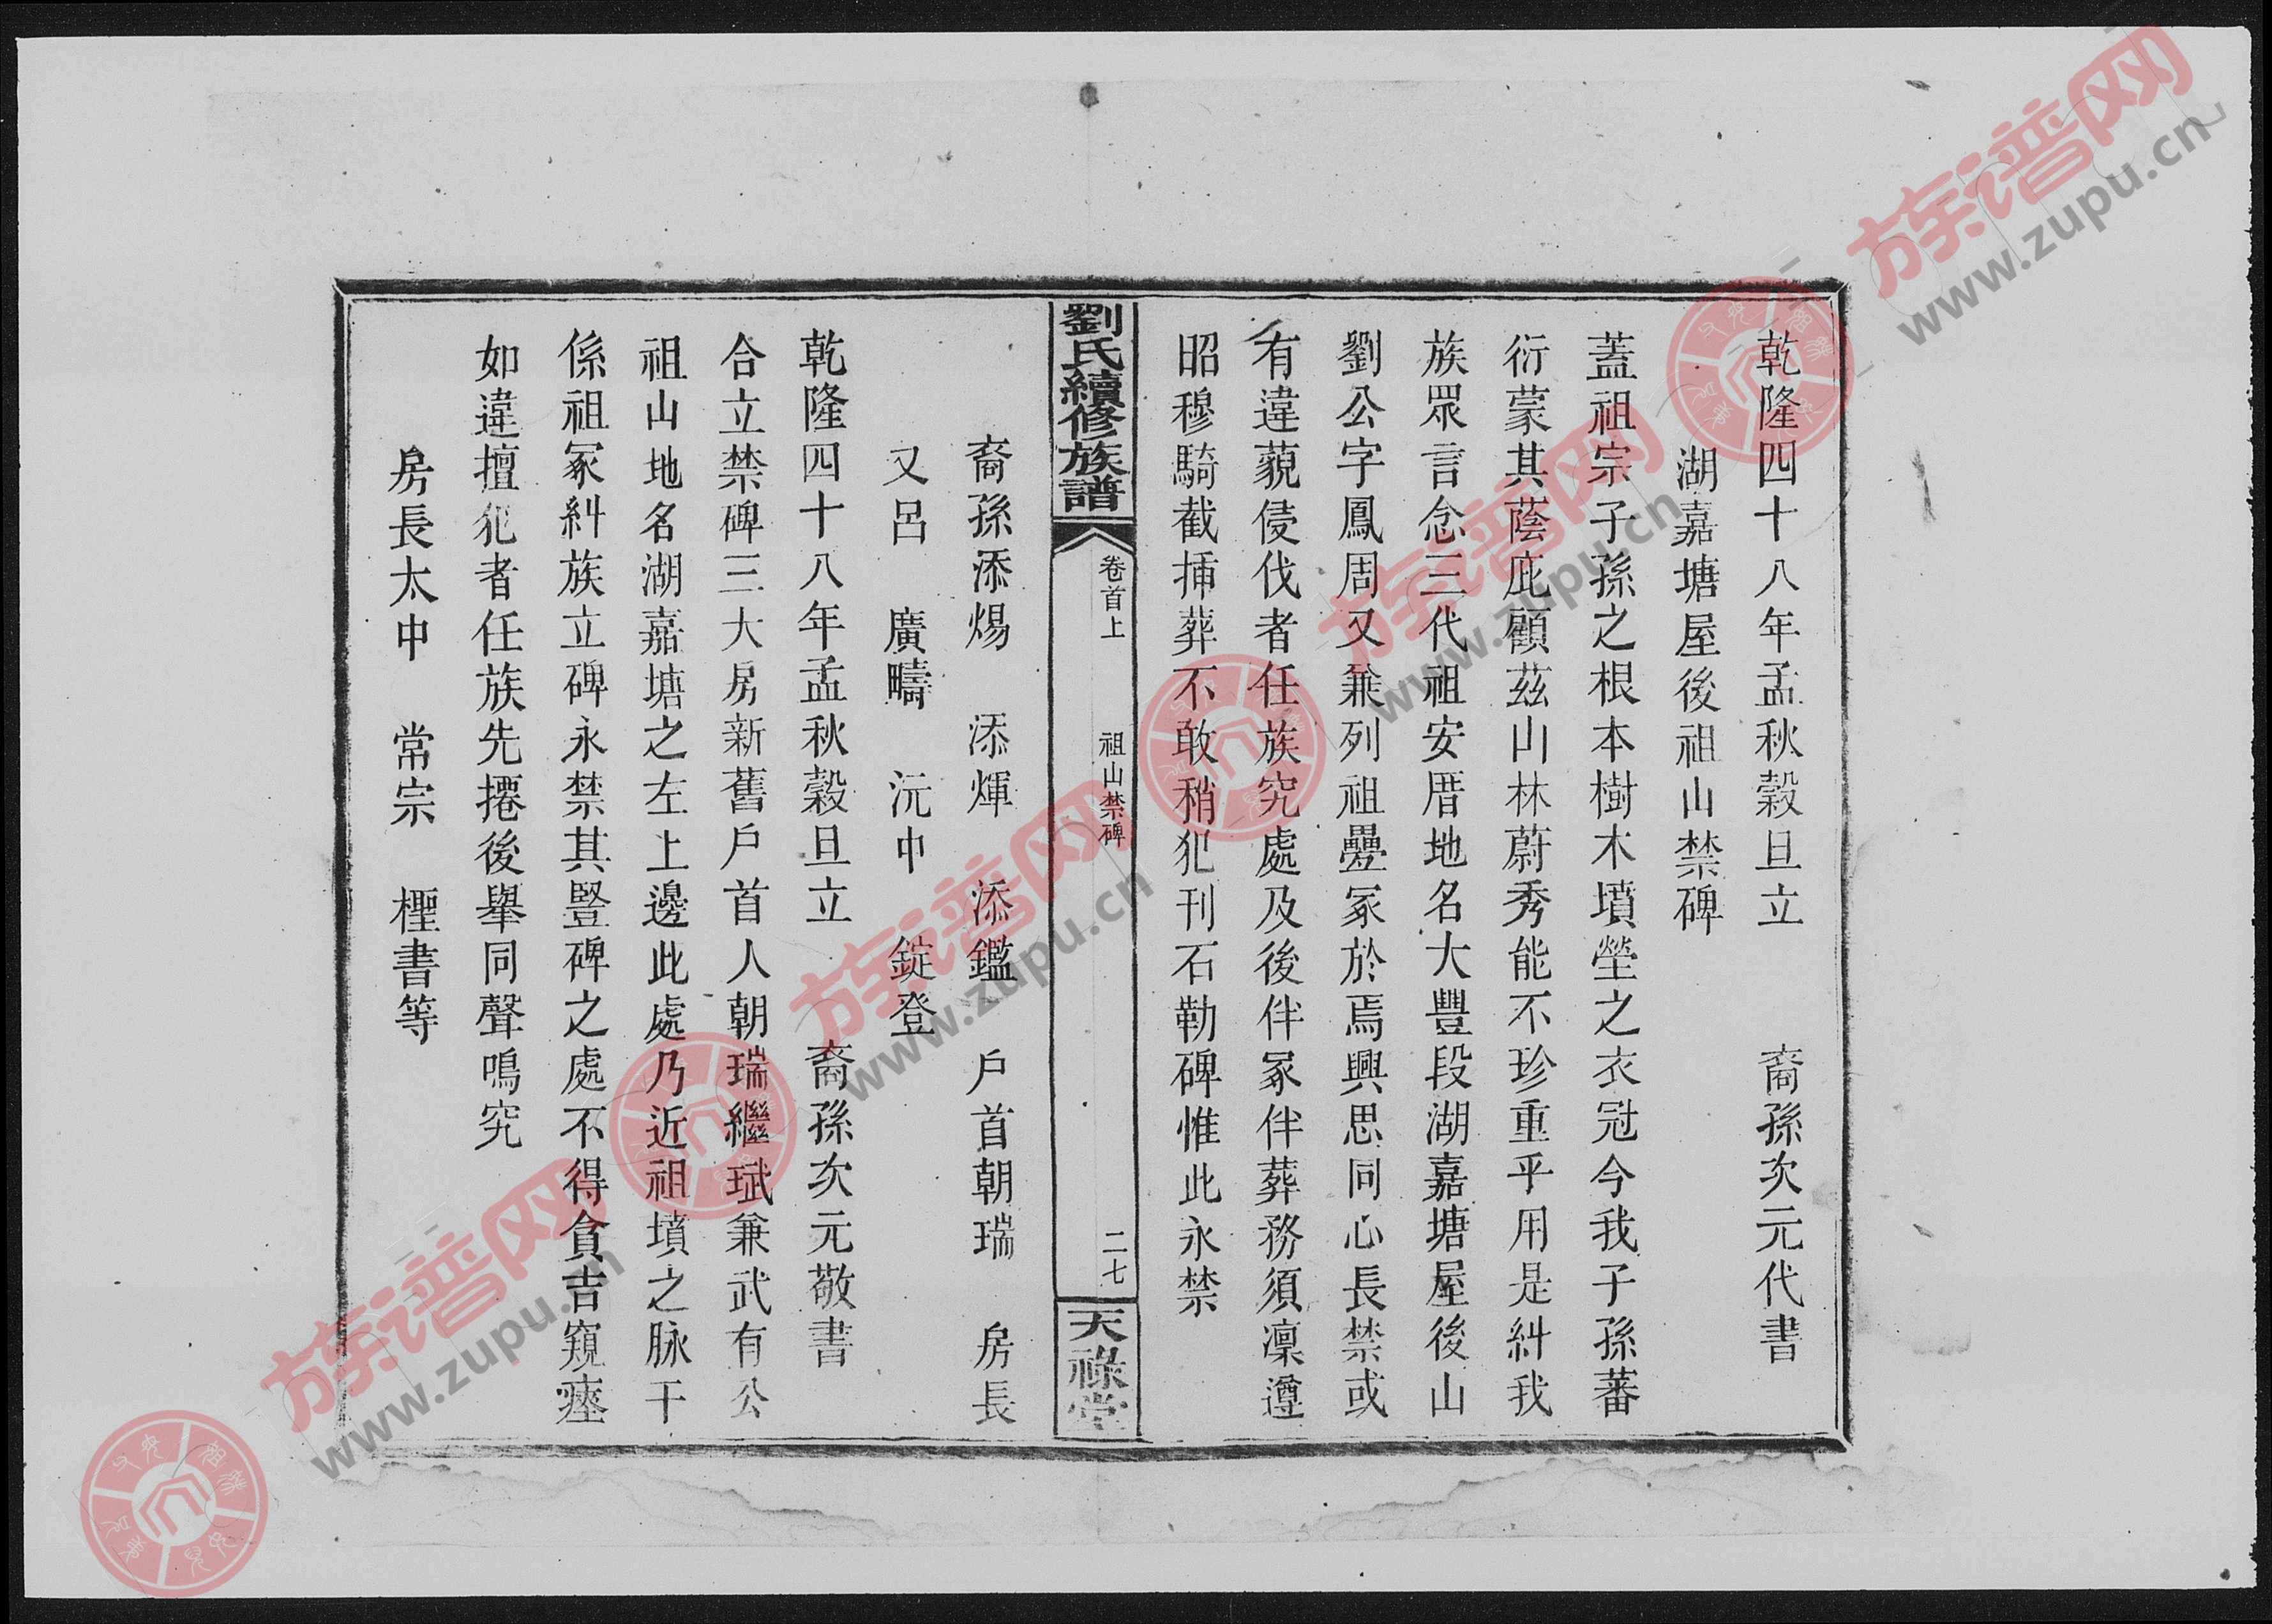 乾隆四十八年孟秋穀旦立 裔孫次元代書
湖嘉塘屋後祖山禁碑
蓋祖宗子孫之根本樹木墳塋之衣冠今我子孫蕃
衍蒙其蔭庇顧茲山林蔚秀能不珍重乎用是糾我
族眾言念三代祖安厝地名大豐段湖嘉塘屋後山
劉公字鳳周又兼列祖疊冢於焉興思同心長禁或
有違藐侵伐者任族究處及後伴冢伴葬務須凜遵
昭穆騎截揷葬不敢稍犯刊石勒碑惟此永禁
劉氏續修族譜 卷首上 祖山禁碑 二七 天祿堂
裔孫添煬 添煇 添鑑 戶首朝瑞 房長
又呂 廣疇 沅中 錠登
乾隆四十八年孟秋穀旦立 裔孫次元敬書
合立禁碑三大房新舊戶首人朝瑞繼珷兼武有公
祖山地名湖嘉塘之左上邊此處乃近祖墳之脉干
係祖冢糾族立碑永禁其豎碑之處不得貪吉窺瘞
如違擅犯者任族先攇後舉同聲鳴究
房長太中 常宗 桎書等
族谱网
www.zupu.cn
族谱网
www.zupu.cn
族谱网
www.zupu.cn
族谱网
www.zupu.cn